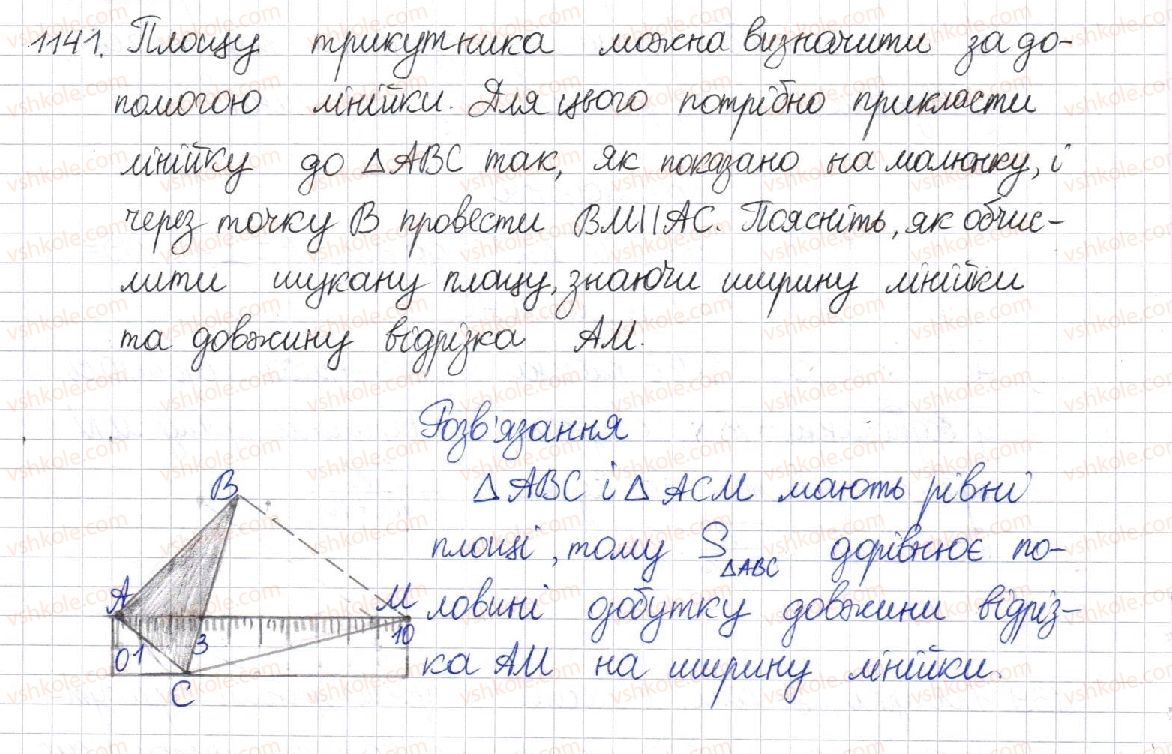 1141. Площу трикутника можна визначити за до-
помогою лінійки. Для цього потрібно прикласти
лінійку до △ABC так, як показано на малюнку, і
через точку B провести BM||AC. Поясніть, як обчис-
лити шукану площу, знаючи ширину лінійки
та довжину відрізка AM.
Розв'язання
△ABC і △ACM мають рівні
площі, тому S△ABC дорівнює по-
ловині добутку довжини відріз-
ка AM на ширину лінійки.
B
A M
0 1 3 10
C
vshkole.com